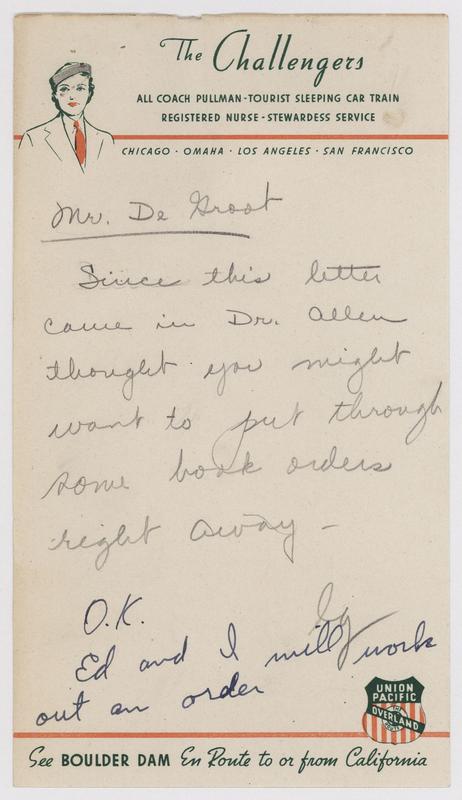 The Challengers
ALL COACH PULLMAN-TOURIST SLEEPING CAR TRAIN
REGISTERED NURSE-STEWARDESS SERVICE
CHICAGO · OMAHA · LOS ANGELES · SAN FRANCISCO
Mr. De Groot
Since this letter
came in Dr. Allen
thought you might
want to put through
some book orders
right away –
O.K.
Ed and I will work
out an order
UNION
PACIFIC
OVERLAND
See BOULDER DAM En Route to or from California